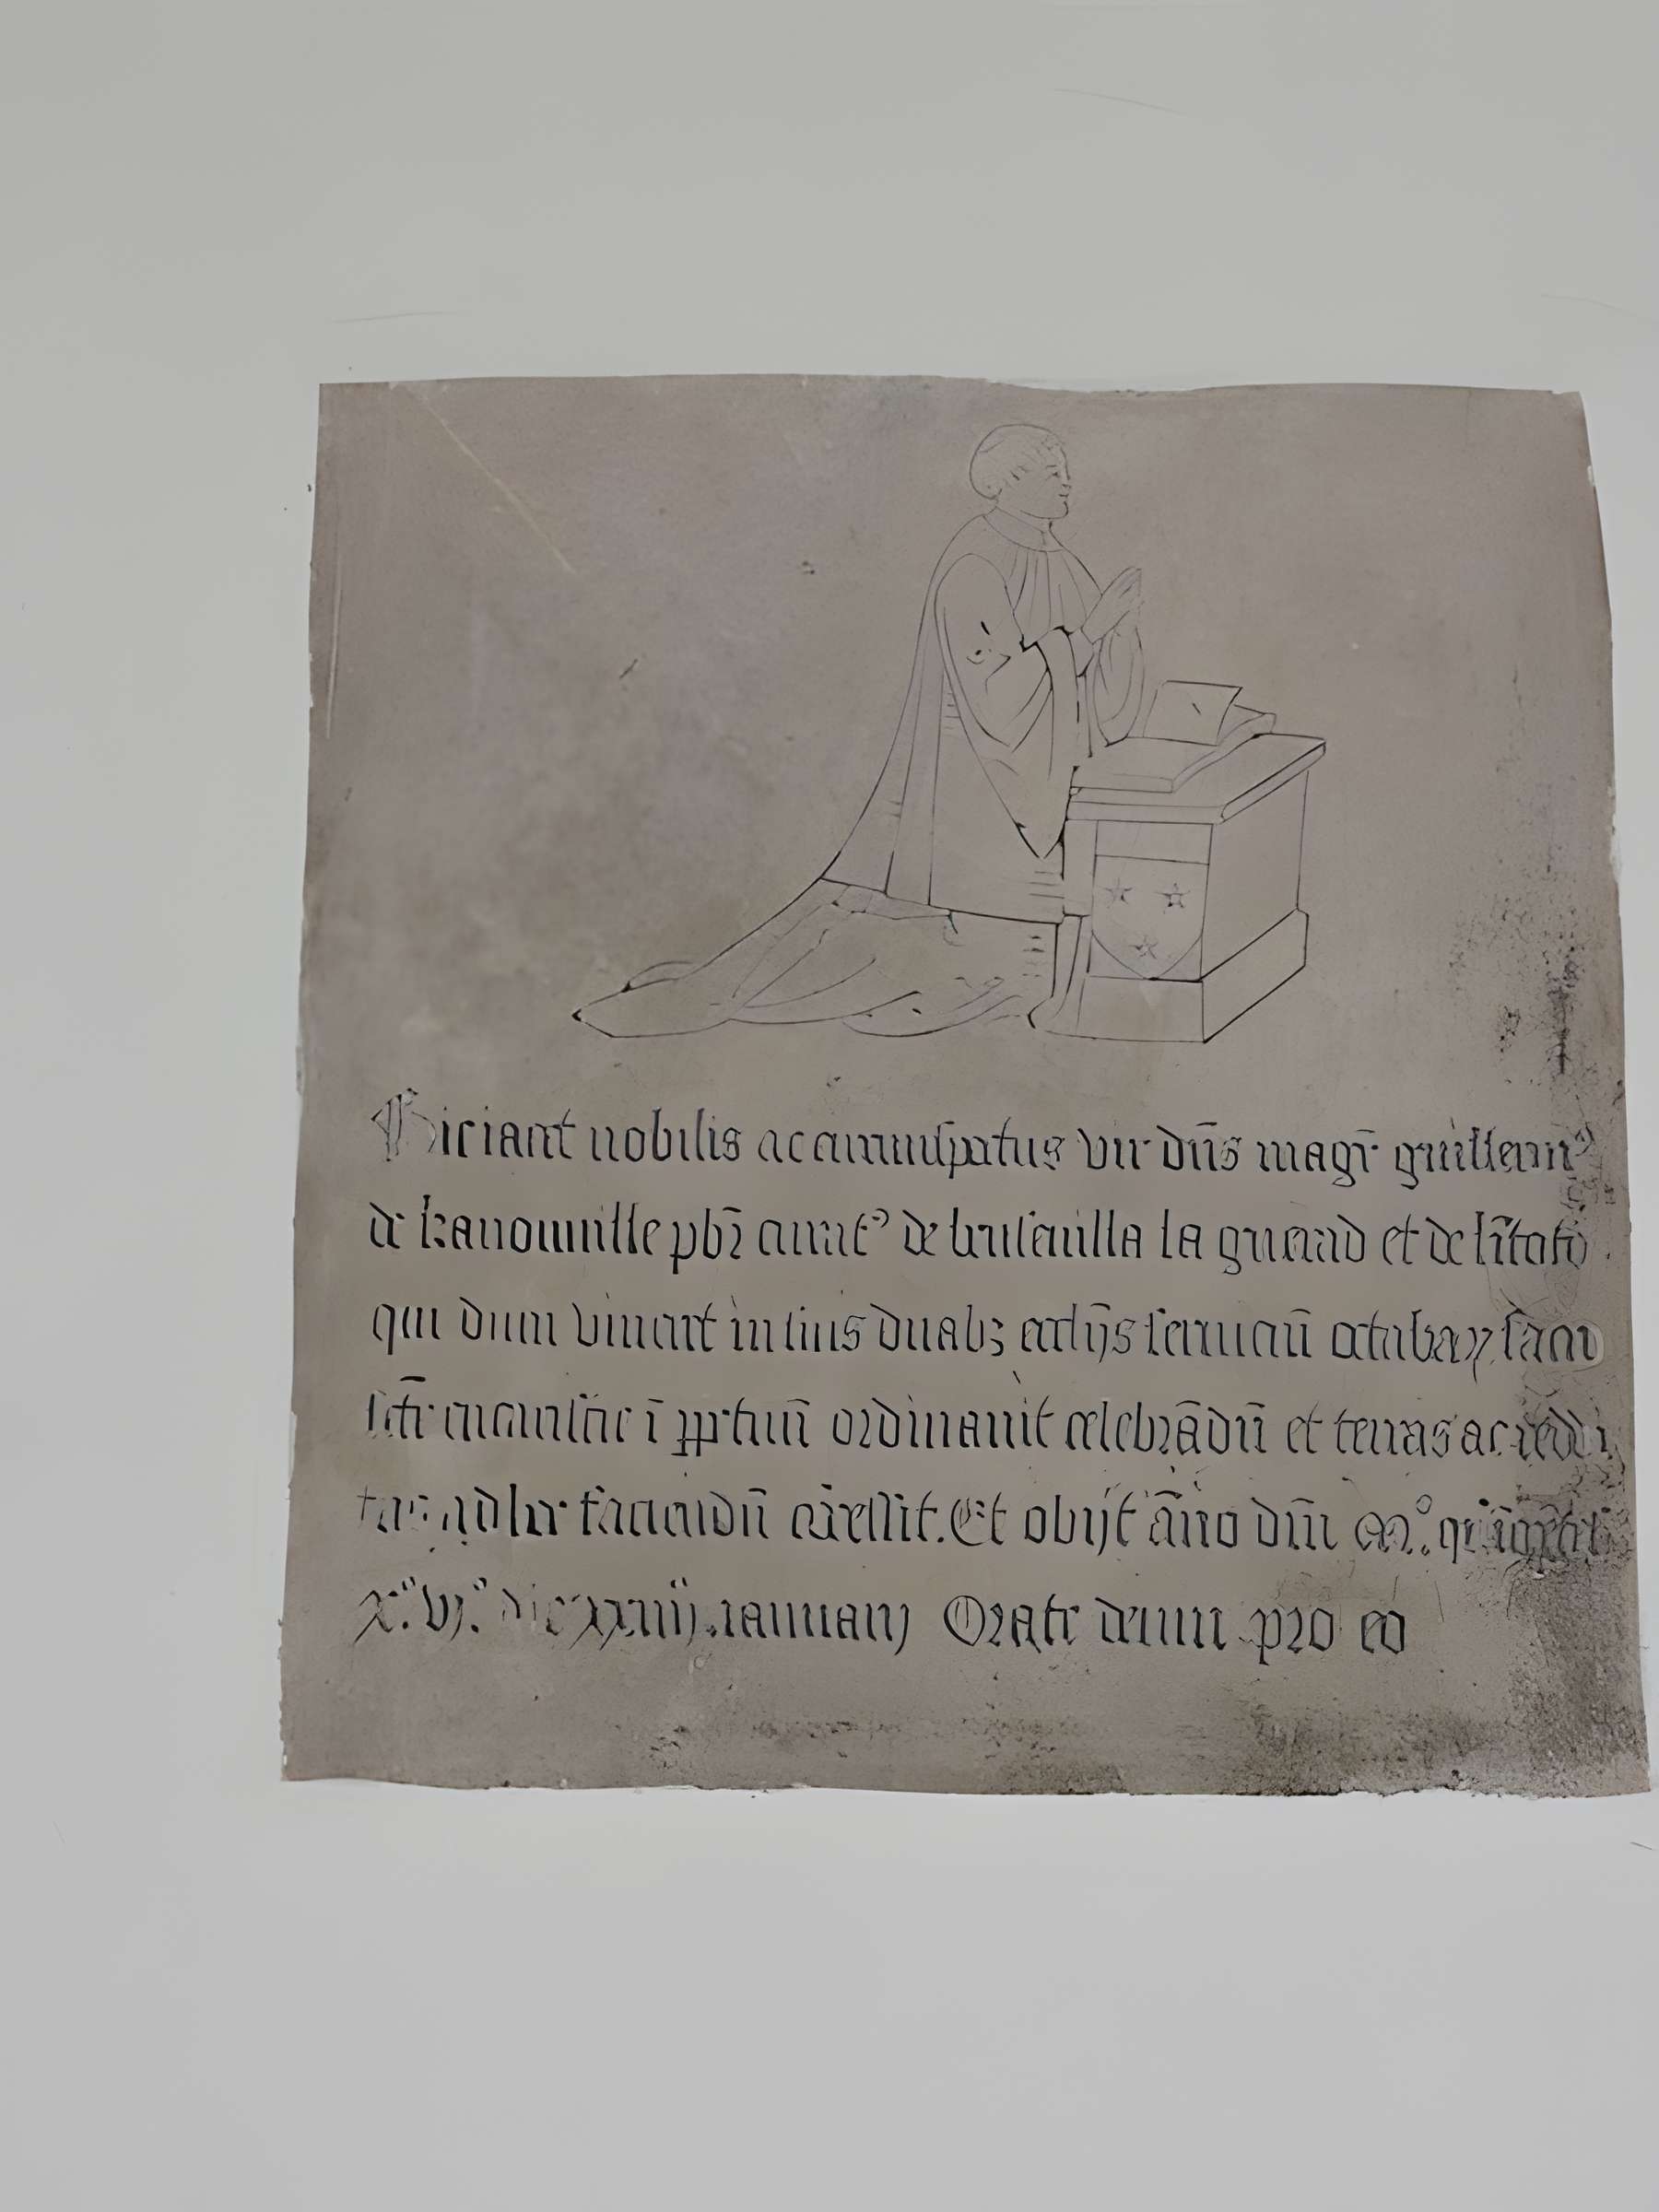 Hic iacet nobilis ac circunspectus vir dn̄s magr̄ guillermꝰ
de hanouuille pb̄r curatꝰ de breteuilla la guerard et de
qui dum viueret in suis duabꝫ eccl̄ijs seruiciū octabaꝝ sacri
ī ꝑpetuū ordinauit celebrādū et terras ac reddi
tus ad hec faciendū Et obijt āno dn̄i Mᵒ.
xᵒ.vjᵒ. die xxiiij ianuarij Orate deum pro eo